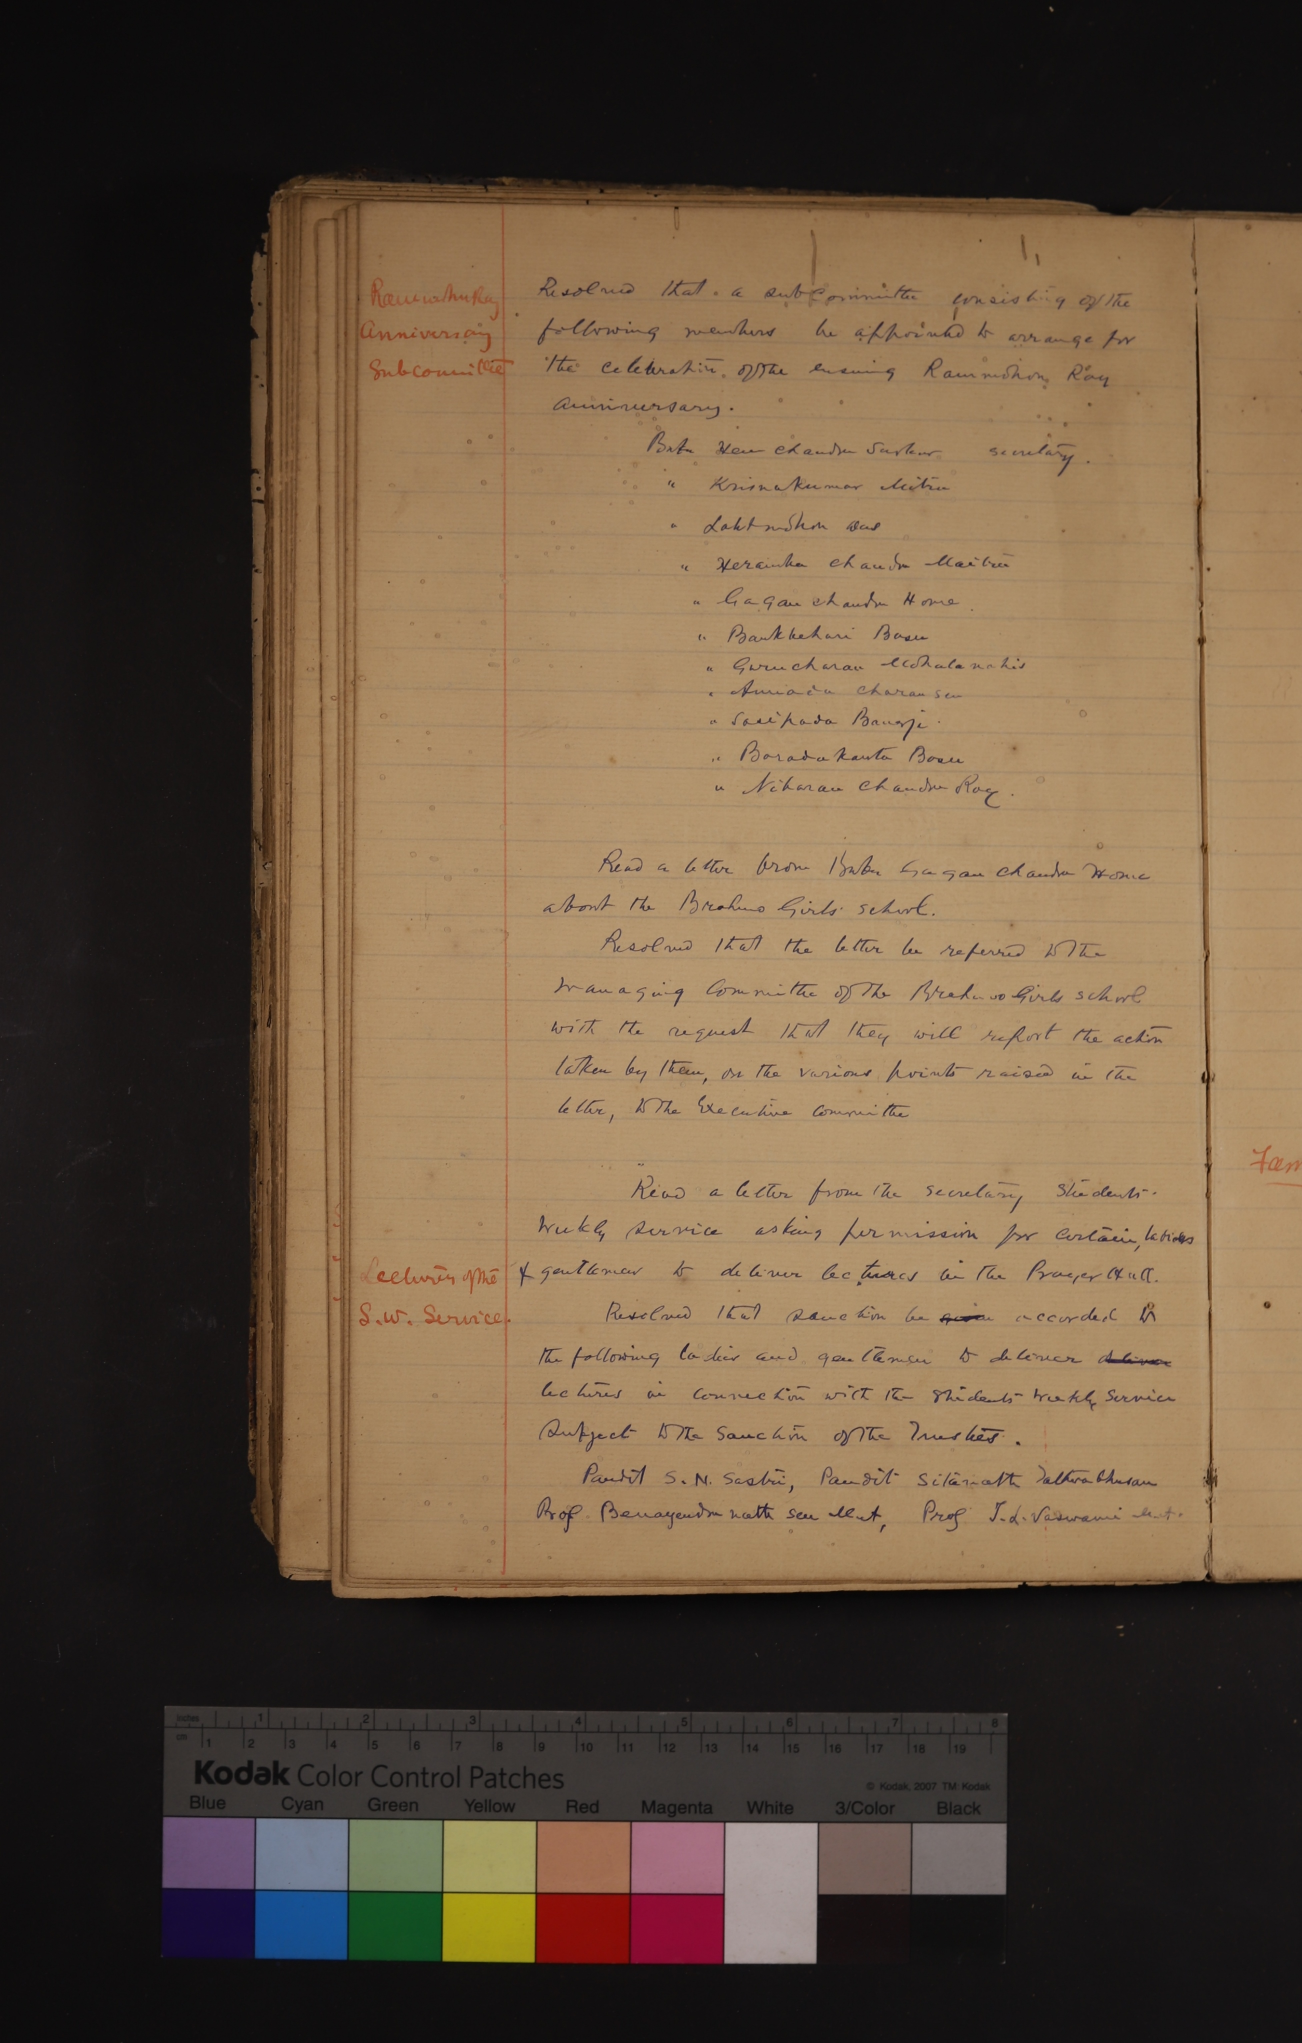 Rammohun Ray
Anniversary
Subcommittee
Resolved that a subcommittee consisting of the
following members be appointed to arrange for
the celebration of the ensuing Rammohon Ray
anniversary.
Babu Hem Chandra Sarkar secretary.
" Krisnakumar Mitra
" Lalitmohon Das
" Heramba Chandra Maitra
" Gagan Chandra Home
" Bankbehari Basu
" Gurucharan Mohalanabis
" Charan Sen
" Sasipada Banerji
" Baradakanta Basu
" Nibaran Chandra Ray.
Read a letter from Babu Gagan Chandra Home
about the Brahmo Girls school.
Resolved that the letter be referred to the
managing Committee of the Brahmo Girls school
with the request that they will report the action
taken by them, on the various points raised in the
letter, to the Executive Committee
Fam
Read a letter from the secretary Students'
Weekly Service asking permission for certain, ladies
& gentlemen to deliver lectures in the Prayer Hall.
Lectures of the
S.W. Service.
Resolved that sanction be given accorded to
the following ladies and gentlemen to deliver deliver
lectures in connection with the Students Weekly Service
subject to the sanction of the Trustees.
Pandit S. N. Sastri, Pandit Sitanath Tattwabhusan
Prof. Benoyendra nath Sen M.A, Prof T. L. Vaswani M.A.
inches 1 2 3 4 5 6 7 8
cm 1 2 3 4 5 6 7 8 9 10 11 12 13 14 15 16 17 18 19
Kodak Color Control Patches
© Kodak, 2007 TM: Kodak
Blue Cyan Green Yellow Red Magenta White 3/Color Black